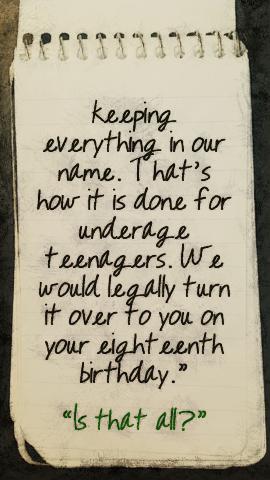 keeping
everything in our
name. That's
how it is done for
underage
teenagers. We
would legally turn
it over to you on
your eighteenth
birthday."
"Is that all?"